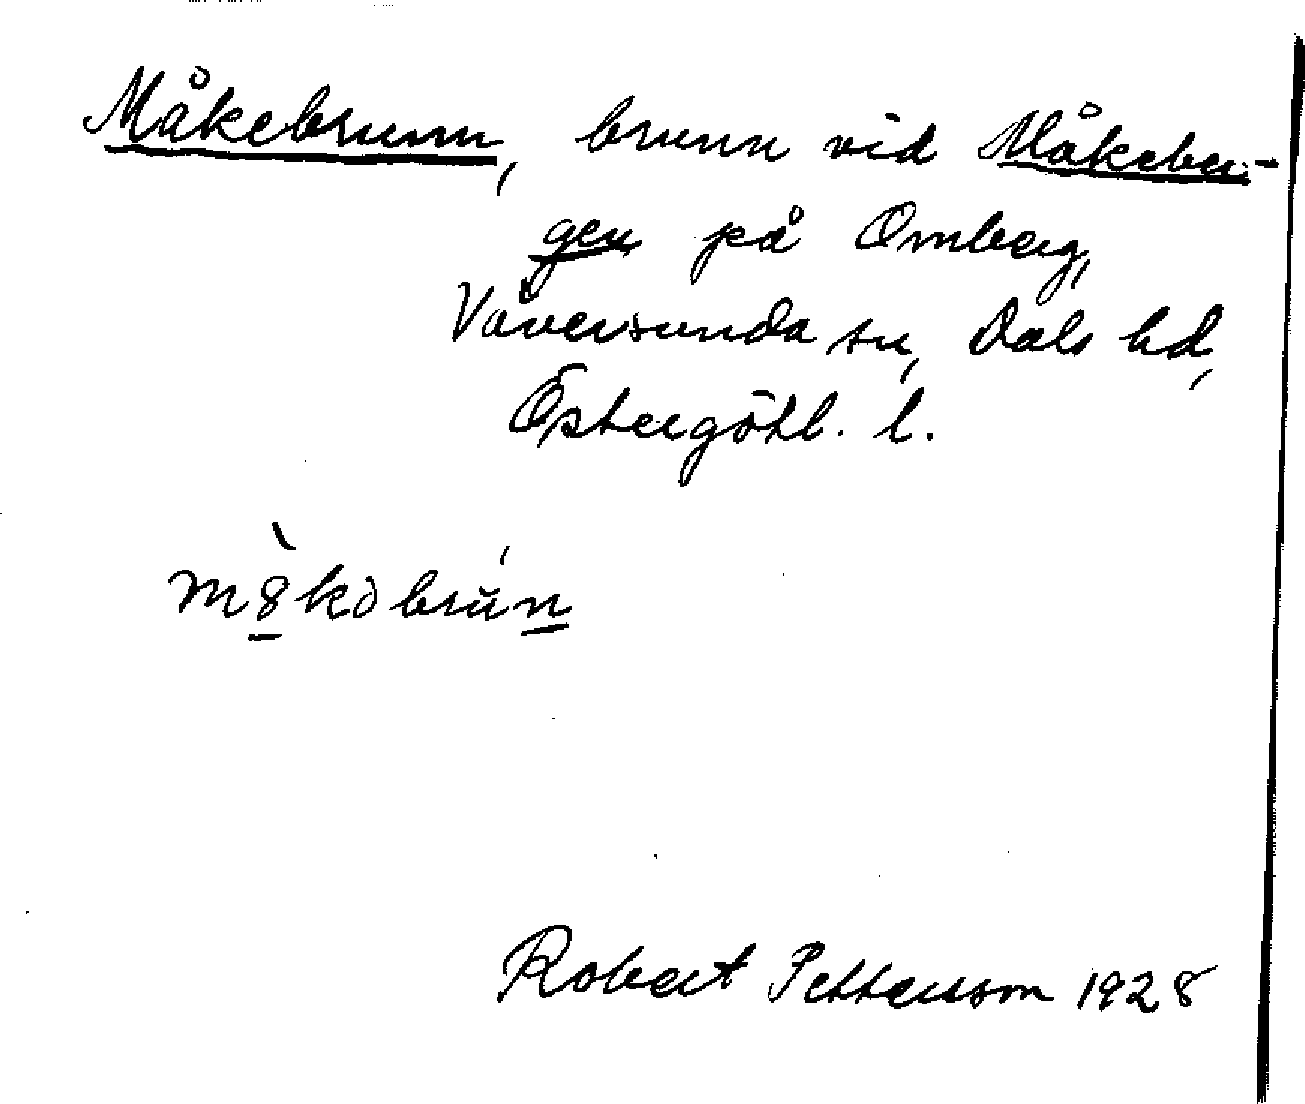 Måkebrunn, brunn vid Måkeber-
gen på Omberg,
Väversunda sn, Dals hd,
Östergötl. l.
Robert Pettersson 1928